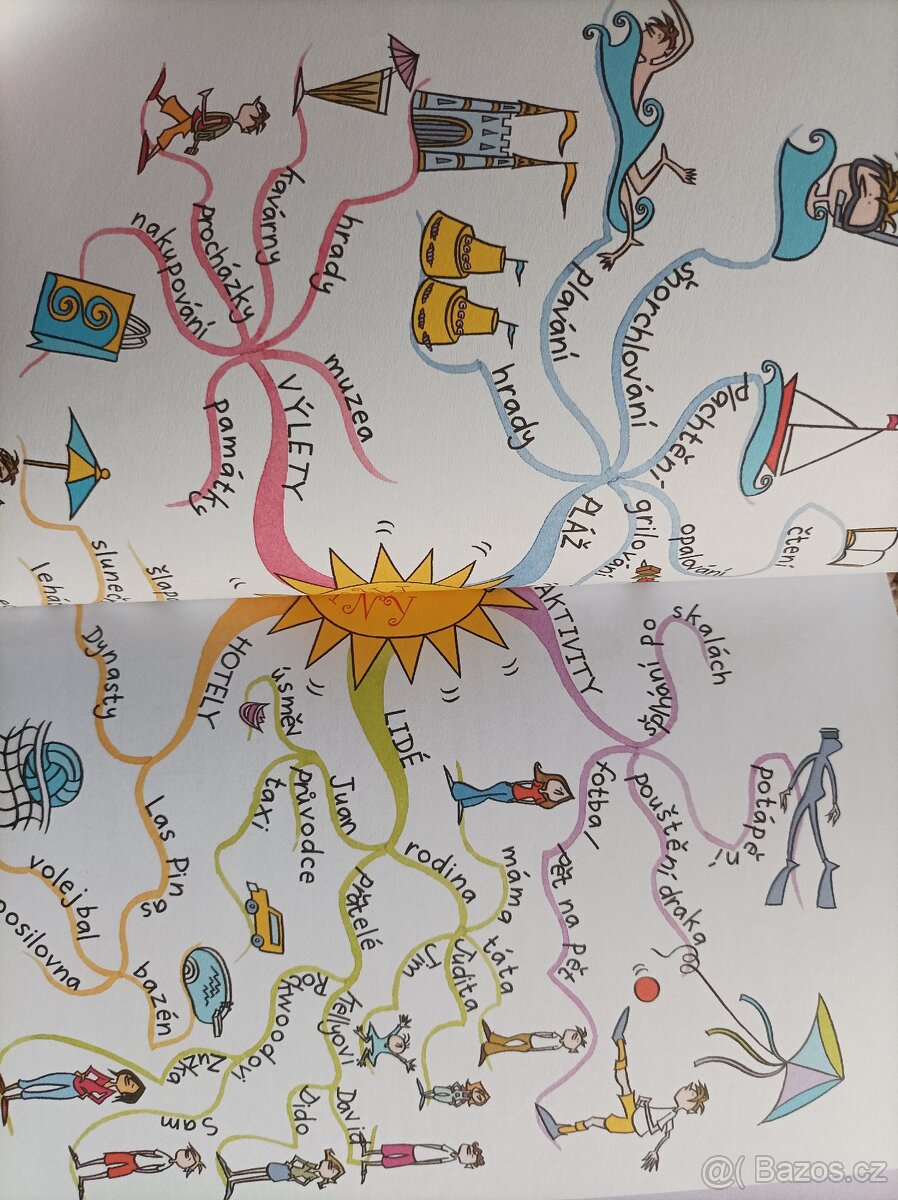 VÝLETY
památky
nakupování
procházky
kavárny
hrady
muzea
PLÁŽ
hrady
plavání
šnorchlování
plachtění
grilování
opalování
čtení
AKTIVITY
šplhání po
skalách
potápě
ní
pouštění draka
fotbal
pět na pět
LIDÉ
rodina
máma
táta
Judita
Jim
přátelé
Jellyovi
David
Dido
Zuzka
Sam
Juan
průvodce
úsměv
taxi
HOTELY
Las Pin
as
bazén
volejbal
posilovna
Dynasty
@( Bazos.cz